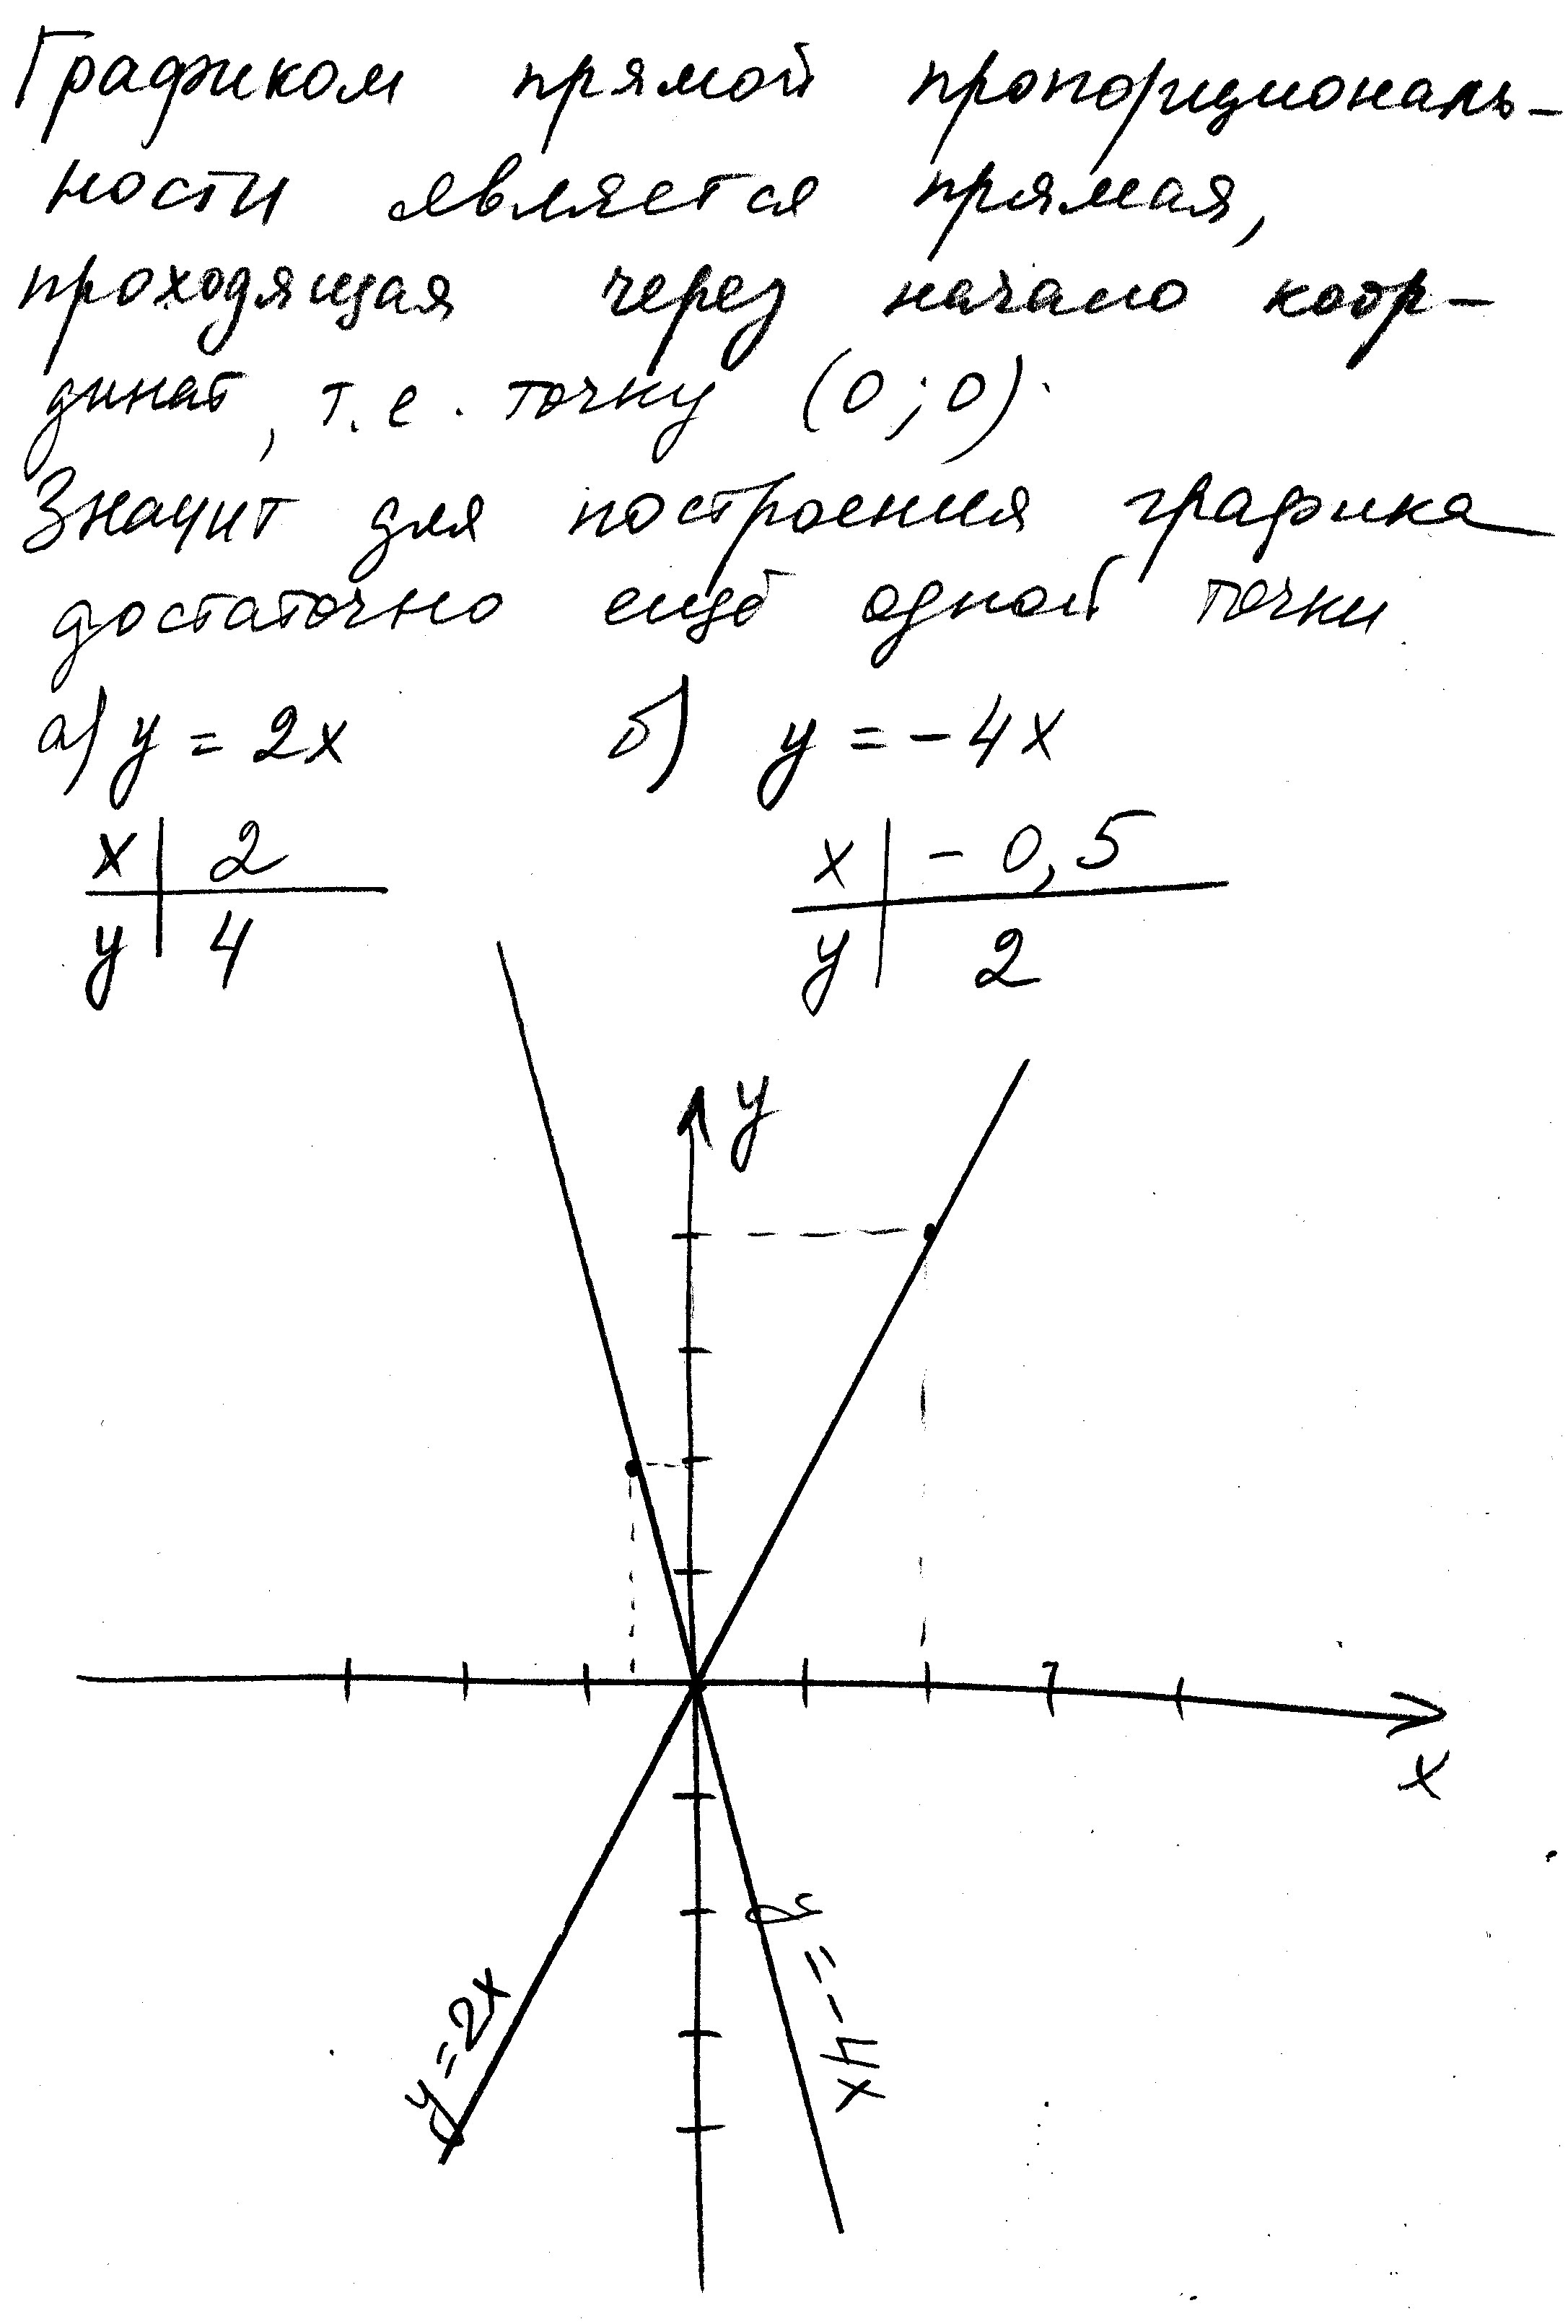 Графиком прямой пропорциональ-
ности является прямая,
проходящая через начало коор-
динат, т.е. точку (0;0).
Значит для построения графика
достаточно ещё одной точки
а) y = 2x б) y = -4x
x | 2 x | - 0,5
y | 4 y | 2
y
x
y = -4x
y=2x